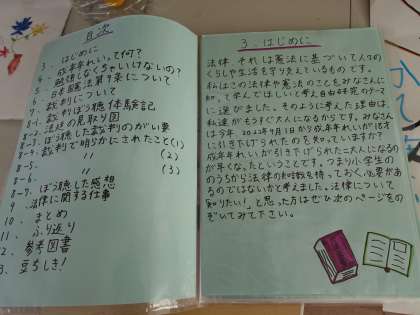 目次
3. はじめに
4. 成年年れいって何？
勉強しなくちゃいけないの？
5. 日本国憲法第9条について
6. 裁判について
7. 裁判ぼう聴体験記
8-1. 法廷の見取り図
8-2. ぼう聴した裁判のがい要
8-3. 裁判で明らかにされたこと(1)
8-4. 〃 (2)
8-5. 〃 (3)
8-6.
8-7. ぼう聴した感想
9 法律に関する仕事
10. まとめ
11. ふり返り
12. 参考図書
3. 豆ちしき！
3. はじめに
法律 それは憲法に基づいて人々の
くらしや生活を守り支えているものです。
私はこの法律や憲法のことをみなさんに
知って学んでほしいと考え自由研究のテーマ
に選びました。そのように考えた理由は、
私達がもうすぐ大人になるからです。みなさん
は今年 2022年4月1日から成年年れいが18才
に引き下げられたのを知っていますか？
成年年れいが引き下げられた=大人になるの
が早くなったということです。つまり小学生の
のうちから法律の知識を持っておく必要があ
るのではないかと考えました。法律について
知りたい！と思った方はぜひ次のページをの
ぞいてみて下さい。